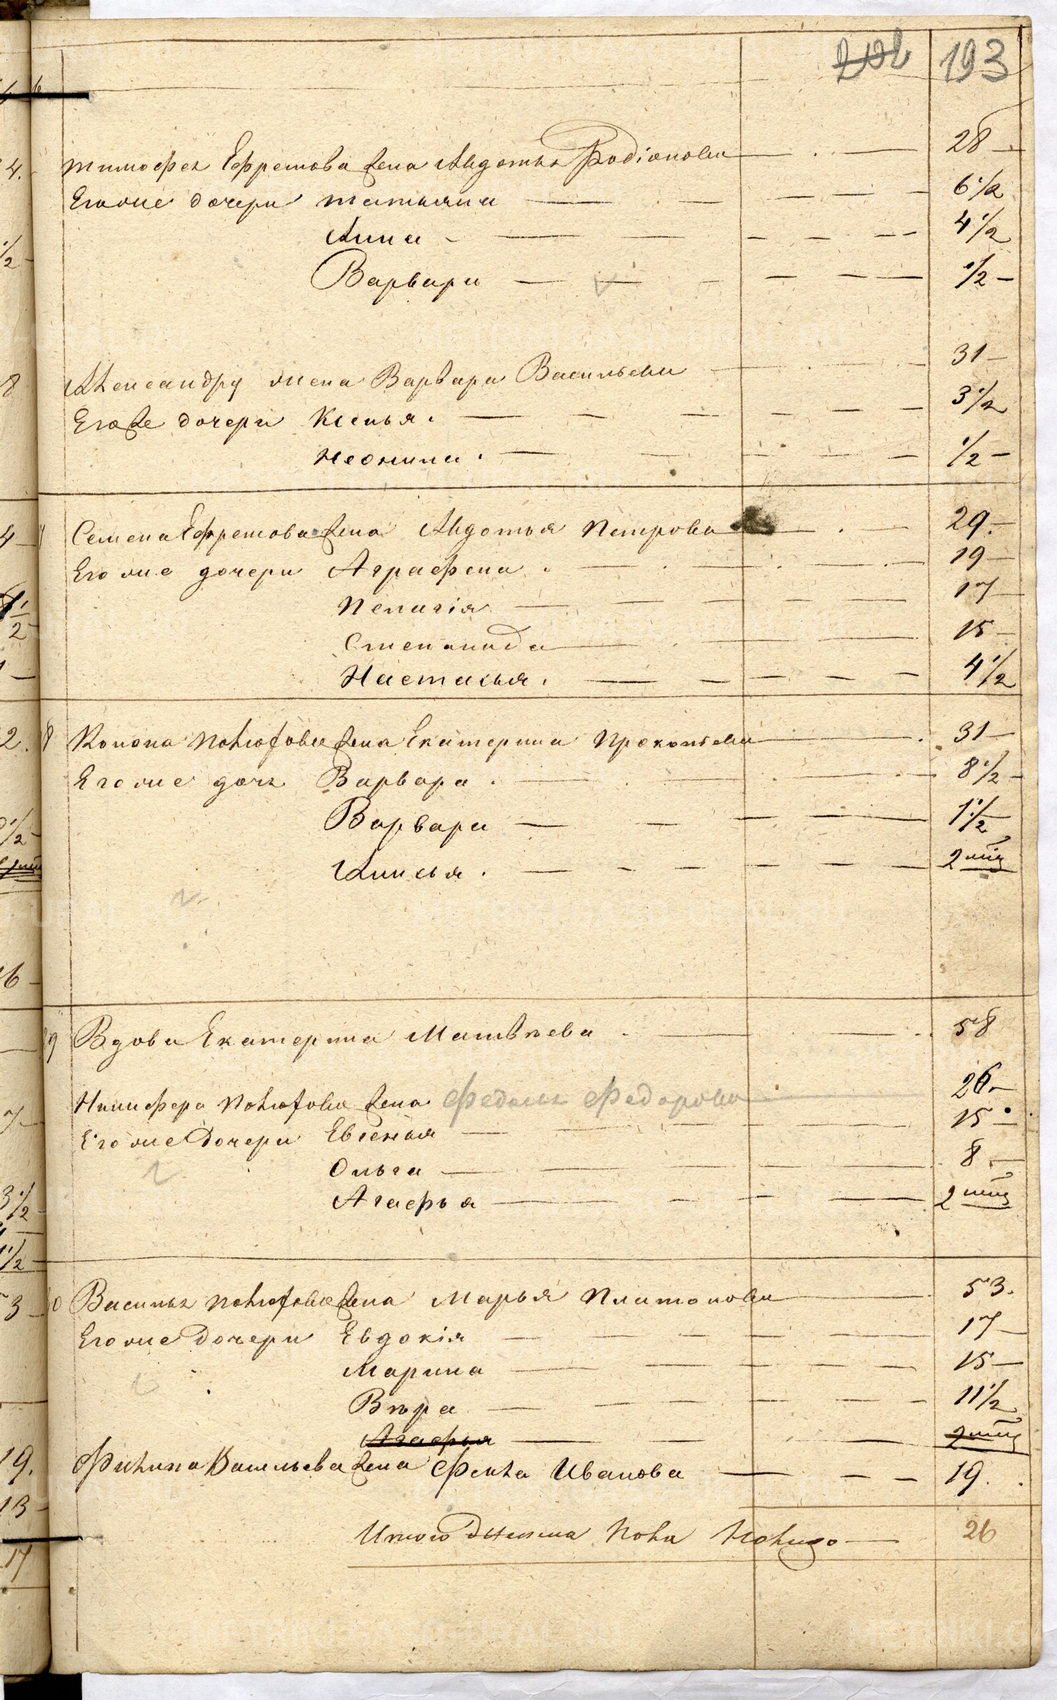 202 193
Тимофея Ефремова жена Авдотья Родіонова 28
Его же дочери Татьяна 6 1/2
Анна 4 1/2
Варвара 1/2
Александру жена Варвара Васильева 31
Его же дочери Ксенья 3 1/2
Неонила 1/2
Семена Ефремова жена Авдотья Петрова 29
Его же дочери Аграфена 19
Пелагія 17
Степанида 15
Настасья 4 1/2
8 Конона жена Екатерина Прокопьева 31
Его же дочь Варвара 8 1/2
Варвара 1 1/2
2
9 Вдова Екатерина Матвѣева 58
Никифора жена Федосья Федорова 26
Его же дочери Евгенья 15
Ольга 8
Агафья 2
Василья жена Марья Платонова 53
Его же дочери Евдокія 17
Марина 15
Вѣра 11 1/2
Агафья 2
Филипа Васильева жена Фекла Иванова 19
Итого женска пола на лицо 26